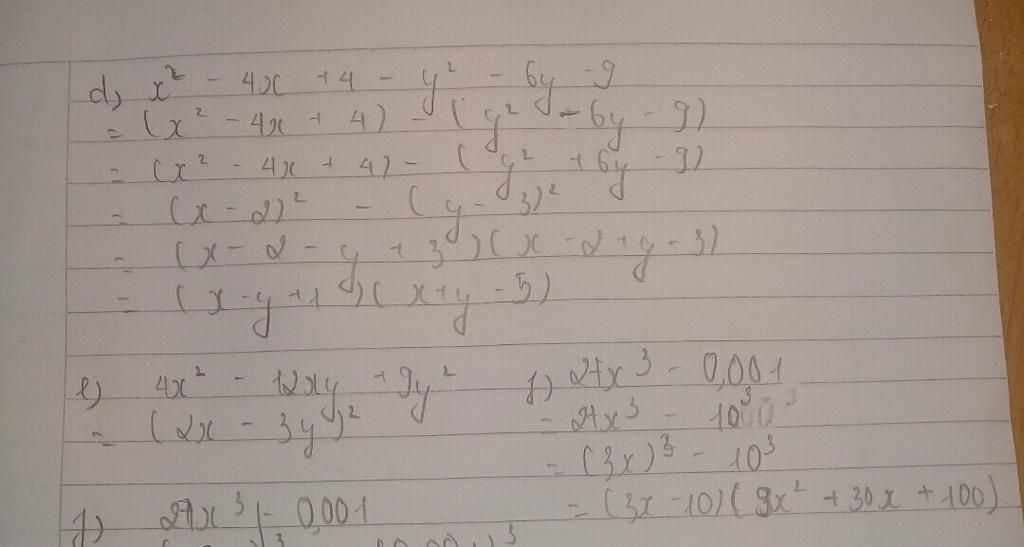 d, x² - 4x + 4 - y² - 6y - 9
= (x² - 4x + 4) - (y² - 6y - 9)
= (x² - 4x + 4) - (y² + 6y - 9)
= (x - 2)² - (y - 3)²
= (x - 2 - y + 3)(x - 2 + y - 3)
= (x - y + 1)(x + y - 5)
e) 4x² - 12xy + 9y²
= (2x - 3y)²
f) 27x³ - 0,001
= 27x³ - 10³
= (3x)³ - 10³
= (3x - 10)(9x² + 30x + 100)
f) 27x³ - 0,001